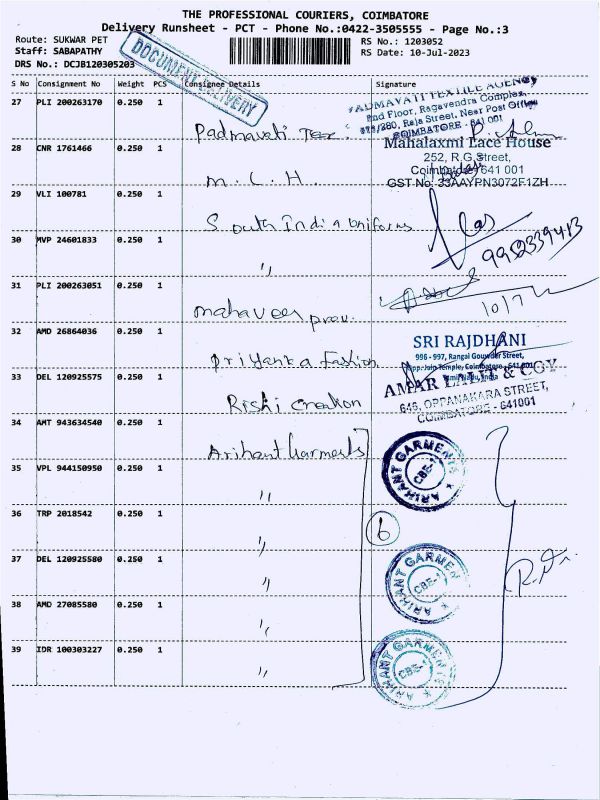 THE PROFESSIONAL COURIERS, COIMBATORE
Delivery Runsheet - PCT - Phone No.:0422-3505555 - Page No.:3
Route: SUKWAR PET
RS No.: 1203052
Staff: SABAPATHY
RS Date: 10-Jul-2023
DRS No.: DCJB120305203
DOCUMENT DELIVERY
S No Consignment No Weight PCS Consignee Details Signature
27 PLI 200263170 0.250 1 Padmavati Tex.
PADMAVATI TEXTILE AGENCY
2nd Floor, Ragavendra Complex,
Raja Street, Near Post Office
COIMBATORE - 641 001
28 CNR 1761466 0.250 1 M. C. H.
Mahalaxmi Lace House
252, R.G.Street,
Coimbatore 641 001
GST No: 33AAYPN3072F1ZH
29 VLI 100781 0.250 1 South India Uniforms
30 MVP 24601833 0.250 1 "
9952339413
31 PLI 200263051 0.250 1 Mahaveer
10/7
32 AMD 26864036 0.250 1 Priyanka Fashion
SRI RAJDHANI
996 - 997, Rangai Gowder Street,
Opp. Jain Temple, Coimbatore - 641 001
Tamil Nadu, India
33 DEL 120925575 0.250 1 Rishi Creation
AMAR LALIT & COY
646, OPPANAKARA STREET,
COIMBATORE - 641001
34 AMT 943634540 0.250 1 Arihant Garments
ARIHANT GARMENTS
CBE-1
35 VPL 944150950 0.250 1 "
36 TRP 2018542 0.250 1 "
6
37 DEL 120925580 0.250 1 "
ARIHANT GARMENTS
CBE-1
38 AMD 27085580 0.250 1 "
39 IDR 100303227 0.250 1 "
ARIHANT GARMENTS
CBE-1